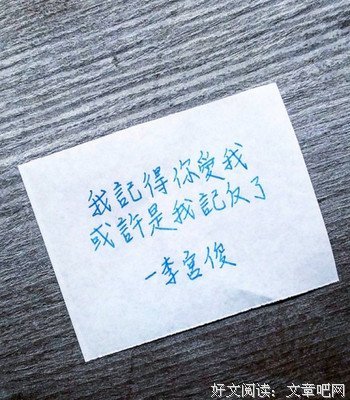 我記得你愛我
或許是我記反了
–李宮俊
好文阅读：文章吧网